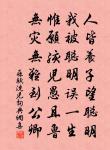 人皆養子望聰明
我被聰明誤一生
惟願孩兒愚且魯
無災無難到公卿
蘇軾洗兒